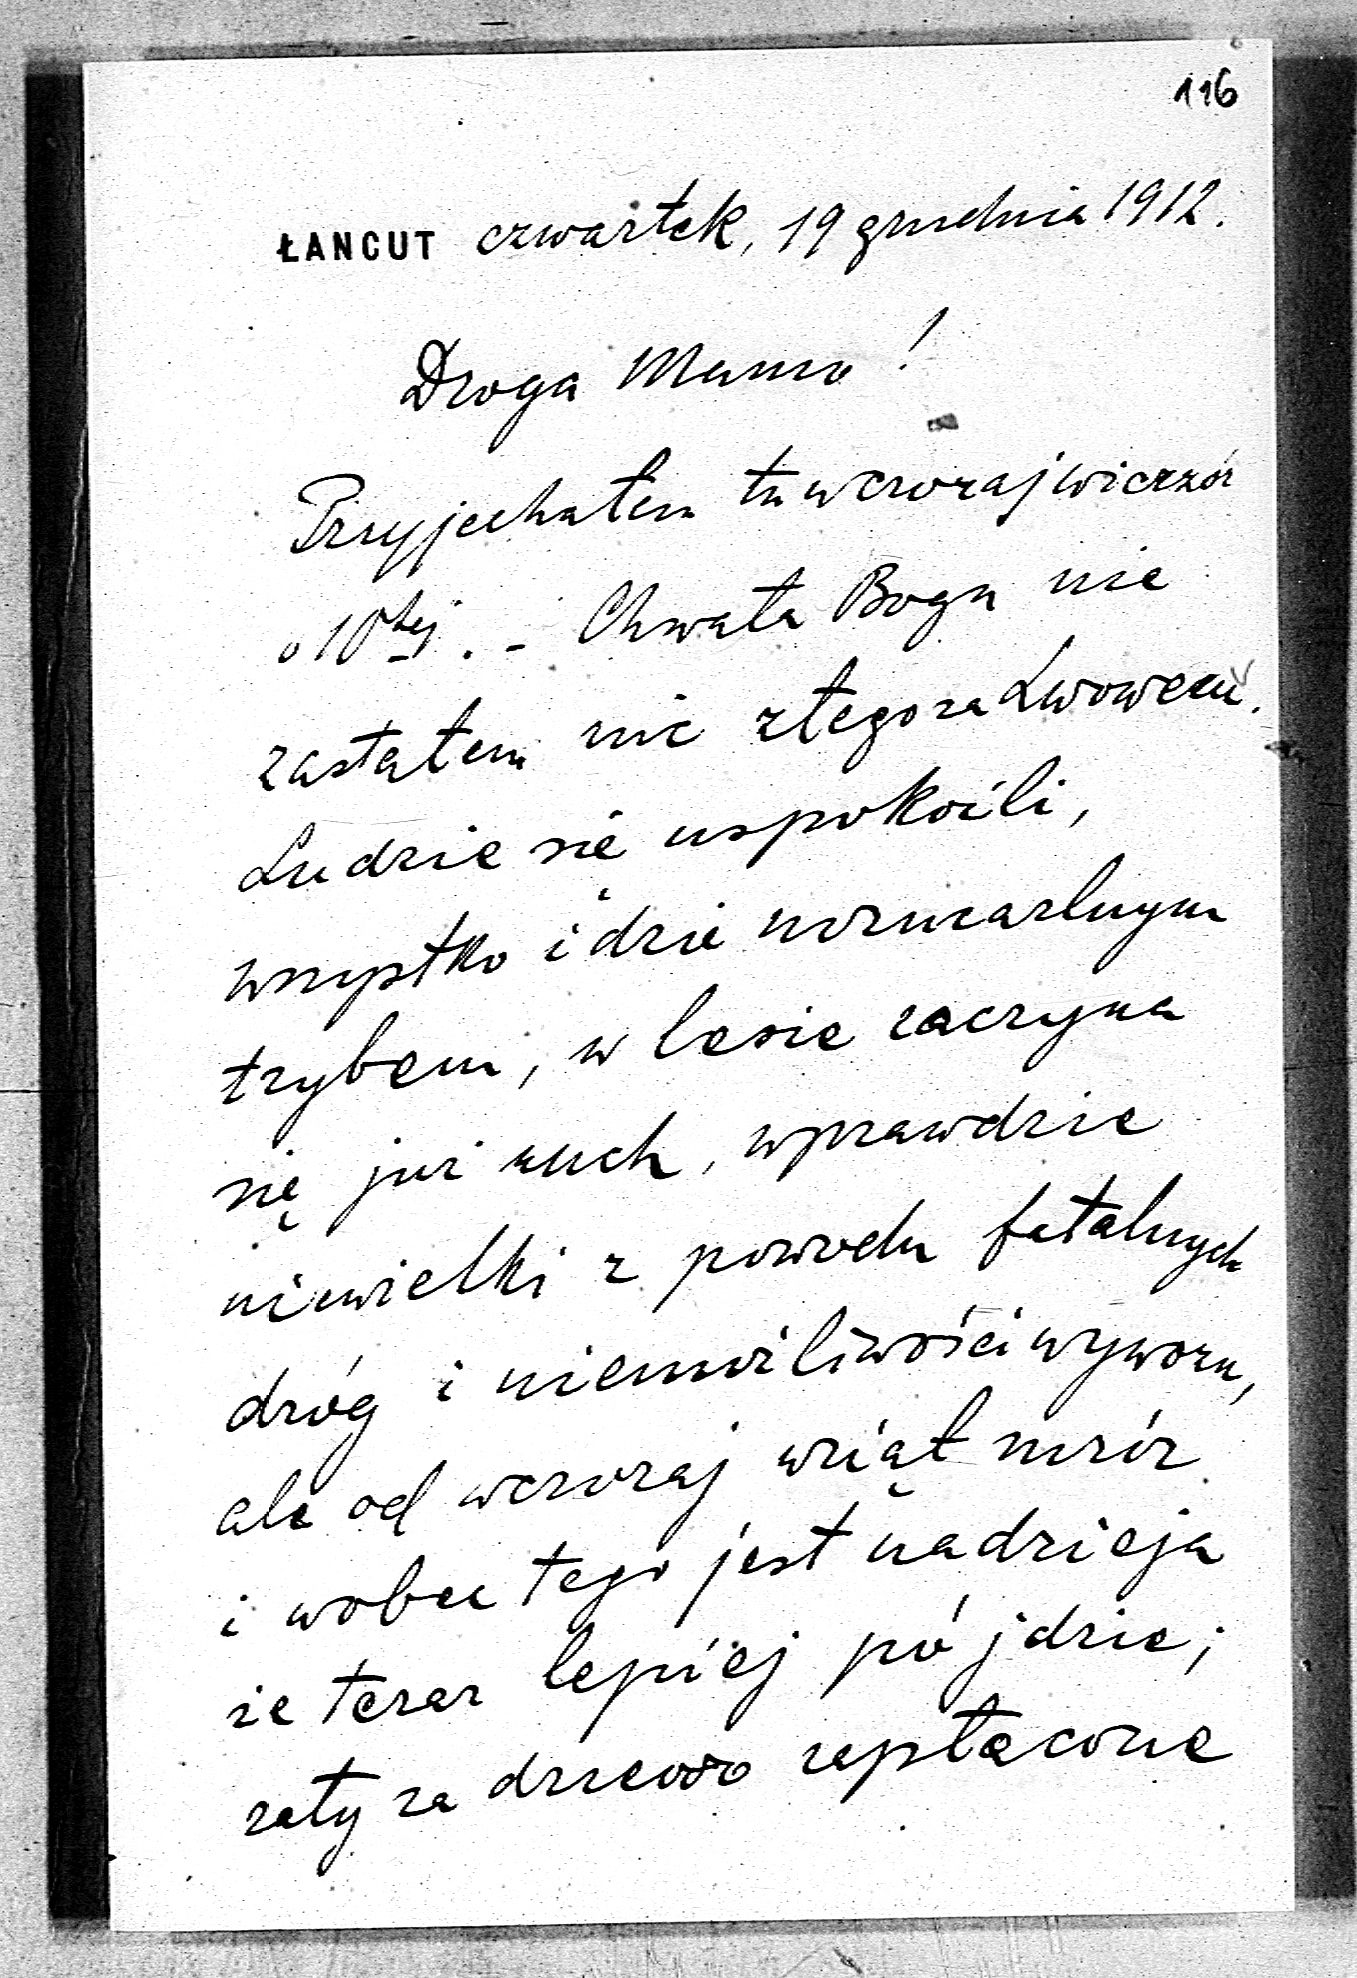 116
ŁANCUT czwartek, 19 grudnia 1912.
Droga Mamo!
Przyjechałem tu wczoraj wieczór
o 10tej. - Chwała Bogu nie
zastałem nic złego za Lwowem.
Ludzie się uspokoili,
wszystko idzie normarlnym
trybem, w lesie zaczyna
się już ruch, wprawdzie
niewielki z powodu fatalnych
dróg i niemożliwości wywozu,
ale od wczoraj wziął mróz
i wobec tego jest nadzieja
że teraz lepiej pójdzie;
raty za drzewo zapłacone